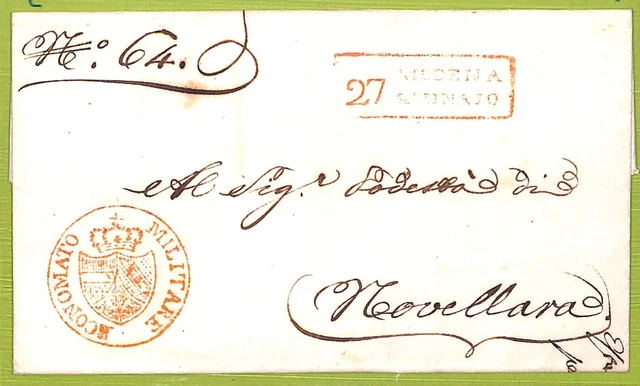 N.º 64.
27 MODENA
GIUNAJO
Al Sig.r Podestà di
Novellara
ECONOMATO MILITARE